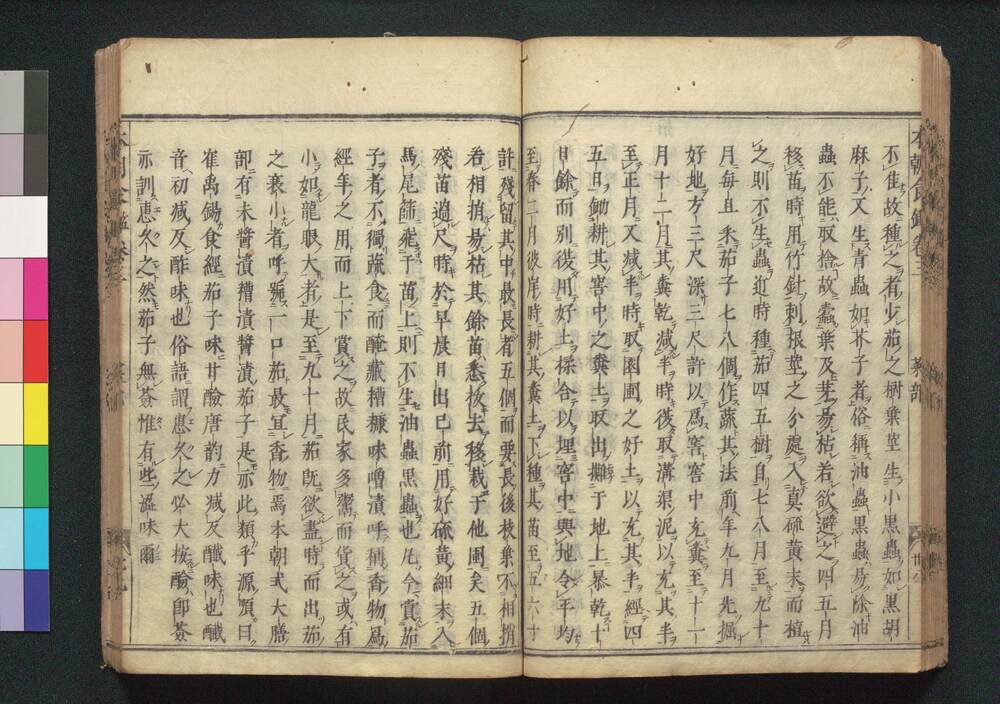 不佳故種之者少茄之樹葉莖生小黒蟲如黒胡
麻子又生青蟲如芥子者俗稱油蟲黒蟲易除油
蟲不能収捨故蠹葉及芽易枯若欲避之四五月
移苗時用竹針刺根莖之分處入真硫黄末而植
之則不生蟲近時種茄四五樹自七八月至九十
月毎旦釆茄子七八個作蔬其法前年九月先掘
好地方三尺深三尺許以爲窖窖中充糞至十一
月十二月其糞乾減半時後取溝渠泥以充其半
至正月又減半時取園圃之好土以充其半經四
五日鋤耕其窖中之糞土取出攤于地上暴乾十
日餘而別後用好土操合以埋窖中與地令平均
至春二月彼岸時耕其糞土下種其苗至五六寸
許殘留其中最長者五個而要長後枝葉不相捎
若相捎易枯其餘苗悉拔去移栽于他圃矣五個
殘苗過尺時於早晨日出已前用好硫黄細末入
馬尾篩飛于苗上則不生油蟲黒蟲也凡今賞茄
子者不獨蔬食而醃藏糟糠味噌漬呼稱香物爲
經年之用而上下賞之故民家多鬻而貨之或有
小如龍眼大者是至九十月茄既欲盡時而出茄
之衰小者呼號一口茄最宜香物焉本朝式大膳
部有未醤漬糟漬醤漬茄子是亦此類乎源順曰
崔禹錫食經茄子味甘醶唐韵力減反醶味也醶
音初減反酢味也俗語謂恵久之必大按醶即薟
亦訓恵久之然茄子無薟惟有些澁味爾
本朝食鑑巻三
菜部